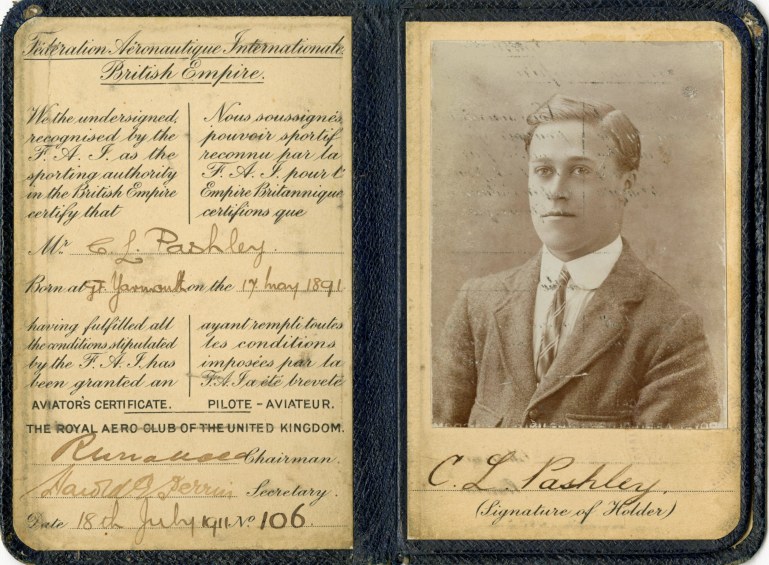 Fédération Aéronautique Internationale
British Empire.
We the undersigned,
recognised by the
F. A. I. as the
sporting authority
in the British Empire
certify that
Nous soussignés
pouvoir sportif
reconnu par la
F. A. I. pour l'
Empire Britannique
certifions que
Mr C. L. Pashley.
Born at Gt. Yarmouth on the 17 May 1891
having fulfilled all
the conditions stipulated
by the F. A. I. has
been granted an
ayant rempli toutes
les conditions
imposées par la
F. A. I a été breveté
AVIATOR'S CERTIFICATE. PILOTE - AVIATEUR.
THE ROYAL AERO CLUB OF THE UNITED KINGDOM.
Chairman.
Harold E Perrin Secretary.
Date 18th July 1911. No 106.
C. L. Pashley.
(Signature of Holder)